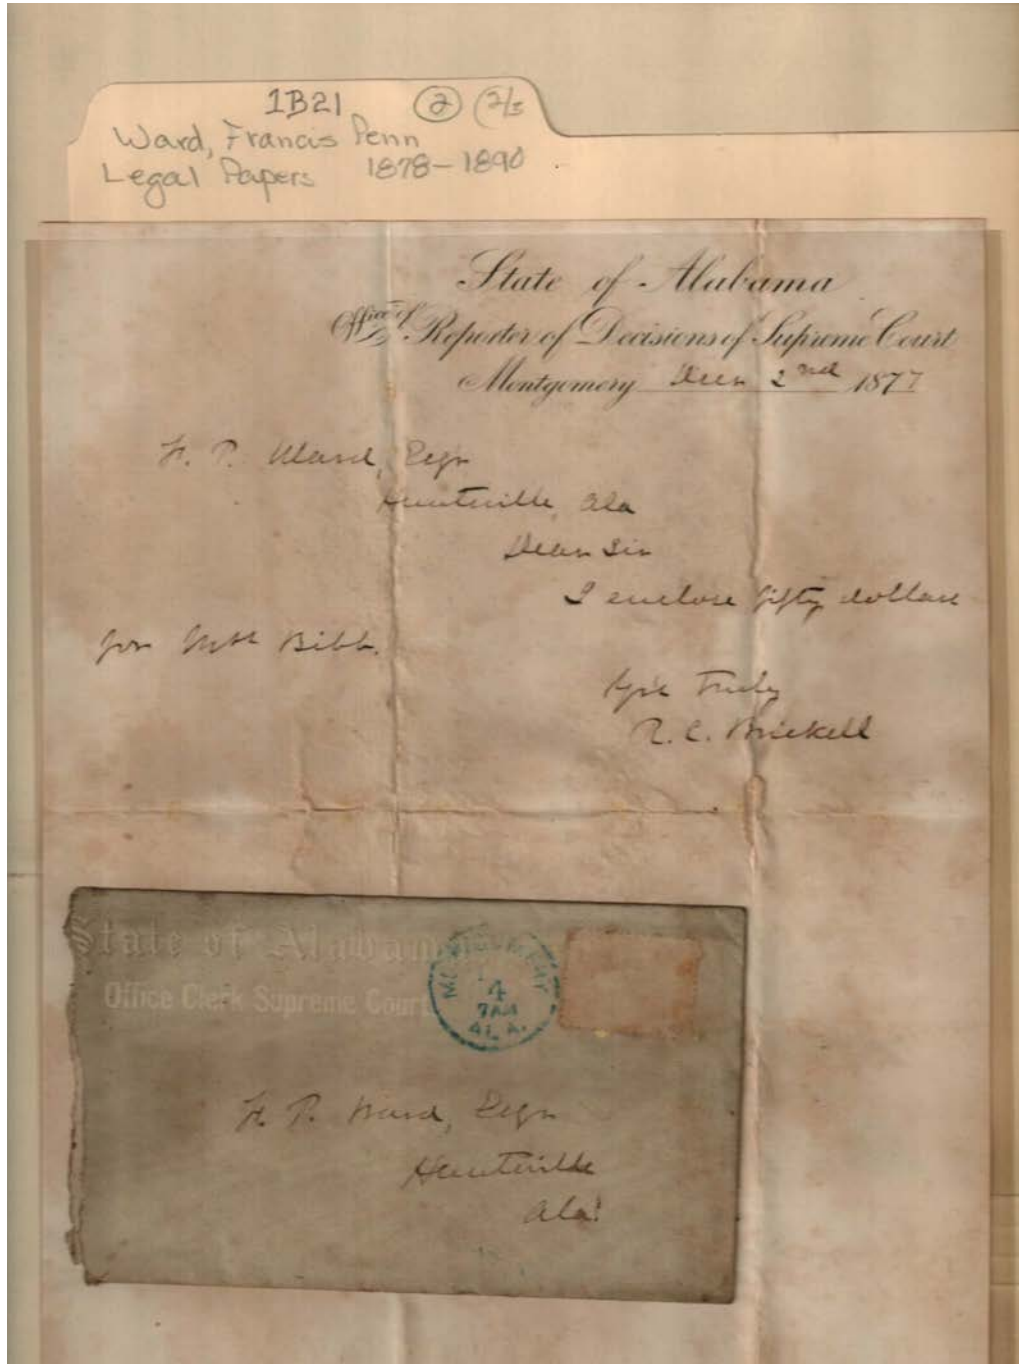 1B21 2 (2/5
Ward, Francis Penn
Legal Papers 1878-1890
State of Alabama
Office of Reporter of Decisions of Supreme Court
Montgomery 2nd 1877
F. P. Ward, Esqr
Huntsville, Ala
Dear Sir
I enclose fifty dollars
for Bibb.
Truly
R. C. Brickell
State of Alabama
Office Clerk Supreme Court
MONTGOMERY
4
7AM
ALA.
F. P. Ward, Esqr
Huntsville
Ala.